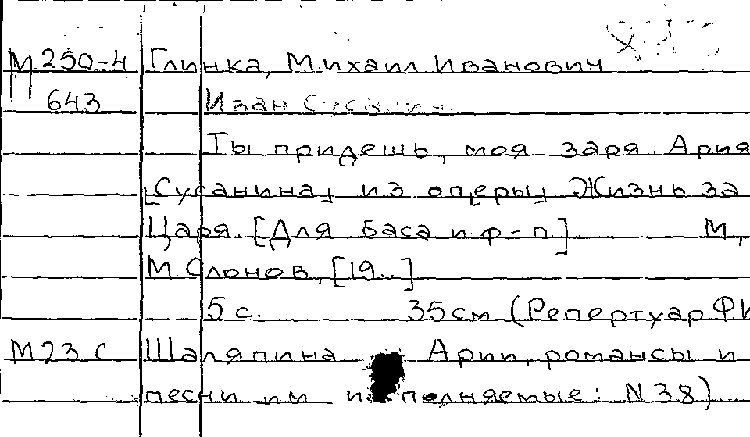 М 250-4 Глинка, Михаил Иванович
643 Иван Сусанин
Ты придешь, моя заря. Ария
[Сусанина] из оперы] Жизнь за
Царя. [Для баса и ф-п] М,
М Слонов, [19..]
5 с. 35см (Репертуар ФИ
М23 с Шаляпина Арии, романсы и
песни им исполняемые: N 38)